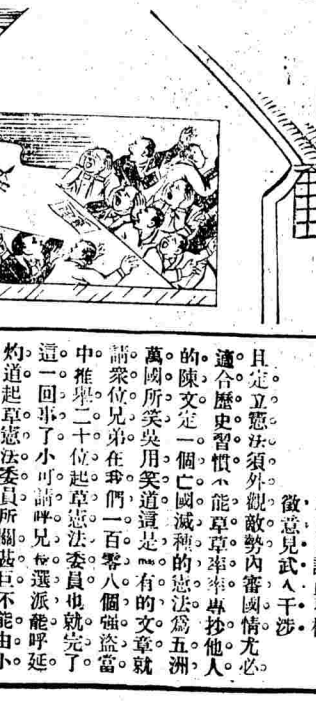 徵意見武人干涉
且定立憲法須外觀敵勢內審國情尤必
適合歷史習慣不能草草率率專抄他人
的陳文定一個亡國滅種的憲法爲五洲
萬國所笑吳用笑道這是有的文章就
請衆位兄弟在我們一百零八個強盜當
中推舉二十位起草憲法委員也就完了
這一回事了小可請呼兄長選派能呼延
灼道起草憲法委員所關甚巨不能由小